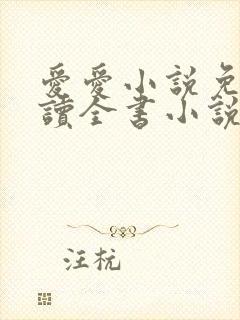 愛愛小說免
讀全書小說
汪杭